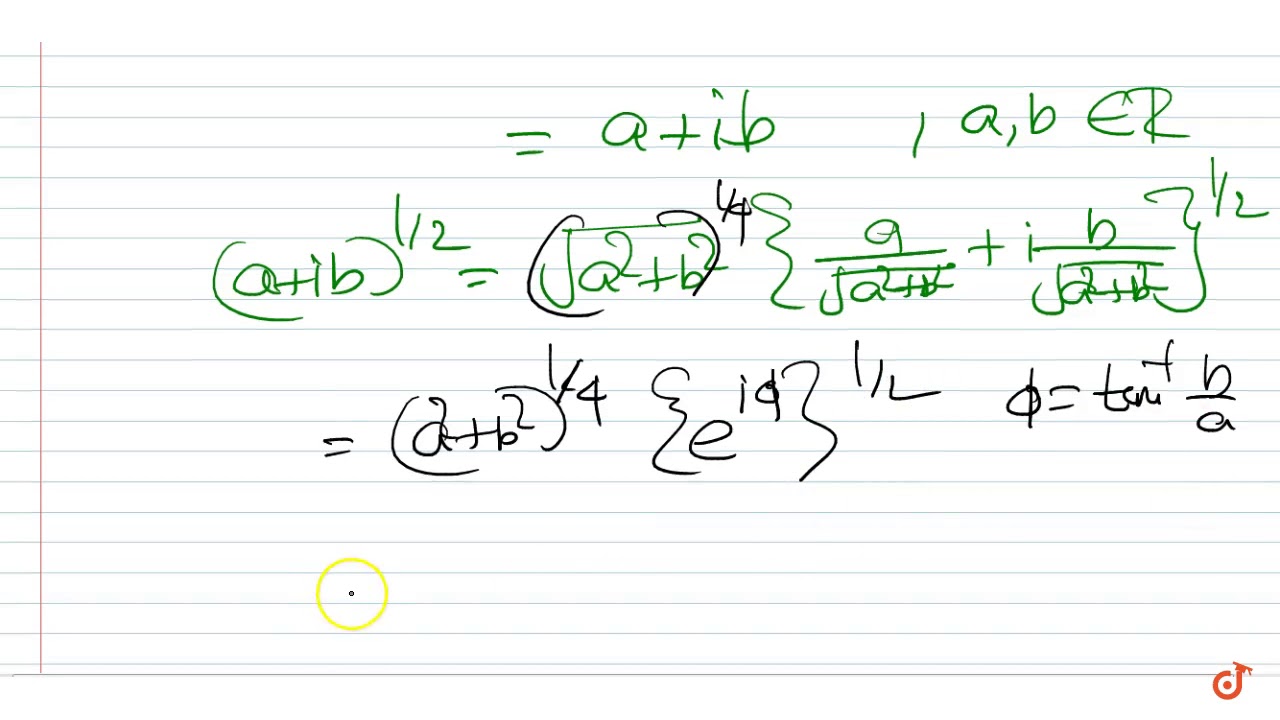 = a+ib , a,b ∈ ℝ
(a+ib)^{1/2} = (√(a²+b²))^{1/4} {a/√(a²+b²) + i b/√(a²+b²)}^{1/2}
= (a²+b²)^{1/4} {e^{iϕ}}^{1/2} ϕ = tan⁻¹ b/a